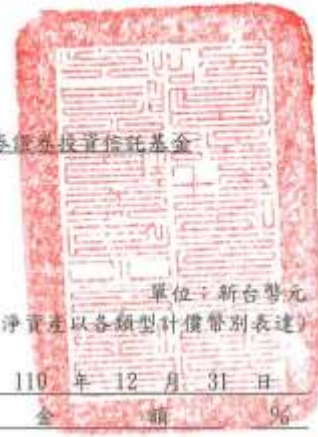 券證券投資信託基金
單位：新台幣元
淨資產以各類型計價幣別表達)
110 年 12 月 31 日
金 額 %